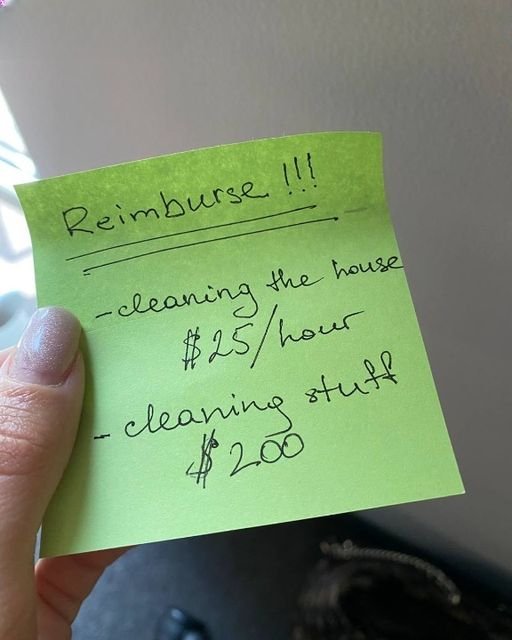 Reimburse !!!
- cleaning the house
$25/hour
- cleaning stuff
$200